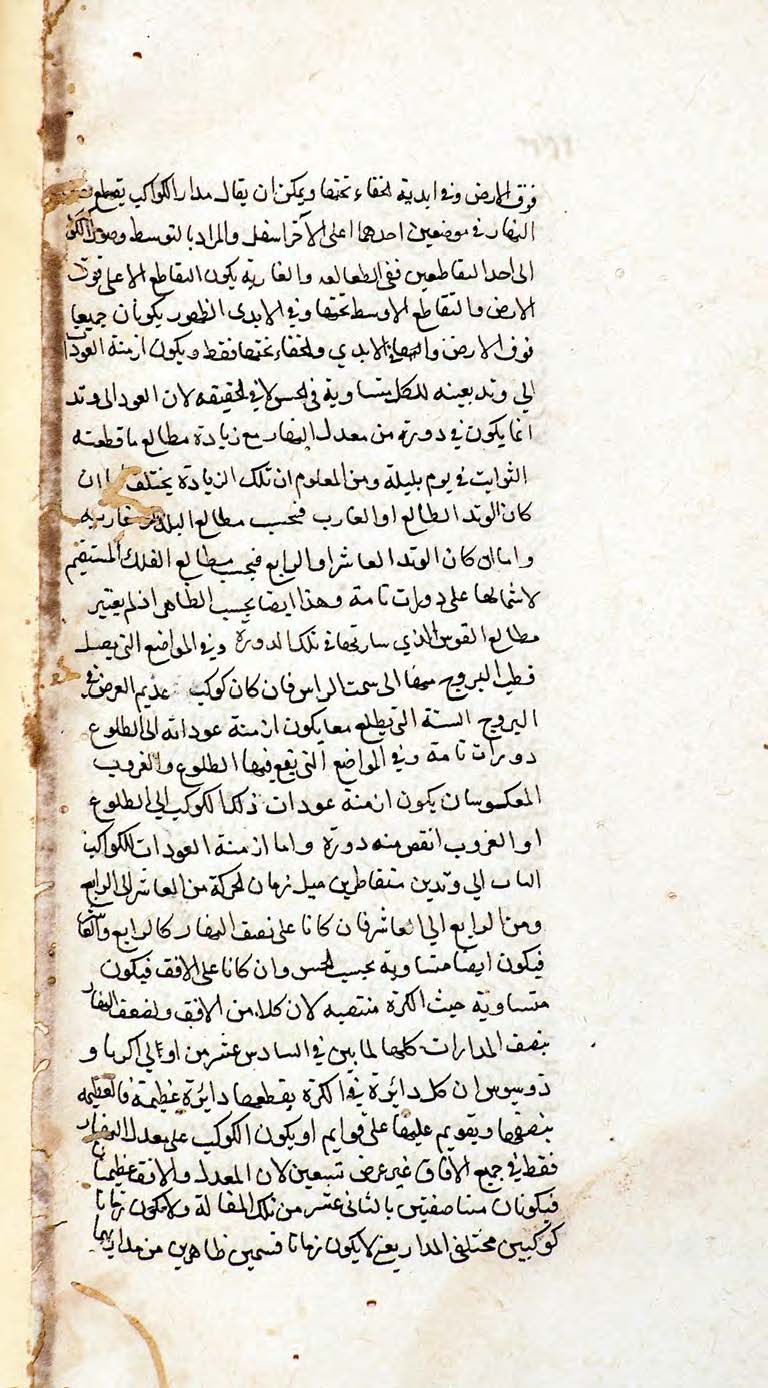 فوق الارض وفي ابدية الخفاء تحتها ويمكن ان يقال مدار الكواكب يقطع نصف
النهار في موضعين احدهما اعلى الآخر اسفل والمراد بالتوسط وصول الكوكب
الى احد التقاطعين ففي الطالعه والغاربة يكون التقاطع الاعلى فوق
الارض والتقاطع الاوسط تحتها وفي الابدى الظهور يكونان جميعا
فوق الارض والابدي الخفاء تحتها فقط ويكون ازمنة العودات
الى وتد بعينه للكل متساوية في الحس لا في الحقيقه لان العود الى وتد
انما يكون في دورة من معدل النهار مع زيادة مطالع ما قطعته
الثوابت في يوم بليلة ومن المعلوم ان تلك الزيادة يختلف ان
كان الوتد الطالع او الغارب فبحسب مطالع البلد او مغاربه
واما ان كان الوتد العاشر او الرابع فبحسب مطالع الفلك المستقيم
لاشتمالها على دورات تامة وهذا ايضا بحسب الظاهر اذ لم يعتبر
مطالع القوس الذي سارتها في تلك الدورة وفي المواضع التي يصل
قطب البروج فيها الى سمت الراس فان كان كوكب عديم العرض في
البروج الستة التي يطلع معا يكون ازمنة عوداته الى الطلوع
دورات تامة وفي المواضع التي يقع فيها الطلوع والغروب
المعكوسان يكون ازمنة عودات ذلك الكوكب الى الطلوع
او الغروب انقص منه دورة واما ازمنة العودات للكواكب
الى وتدين متقاطرين مثل زمان الحركة من العاشر الى الرابع
ومن الرابع الى العاشر فان كانا على نصف النهار كالرابع والعاشر
فيكون ايضا متساوية بحسب الحس وان كانا على الافق فيكون
متساوية حيث الكرة منتصبه لان كلا من الافق ونصف النهار
ينصف المدارات كلها لما بين في السادس عشر من اولى اكر ثاو
ذوسيوس ان كل دائرة في الكرة يقطعها دايرة عظيمة فالعظيمه
ينصفها ويقوم عليها على قوايم او يكون الكوكب على معدل النهار
فقط في جميع الآفاق غير عرض تسعين لان المعدل والافق عظيمتان
فيكونان متناصفتين بالثانى عشر من تلك المقالة ولا يكون زمانا
كوكبين مختلفى المدار يعنى لا يكون زمانا قسمين ظاهرين من مداريهما